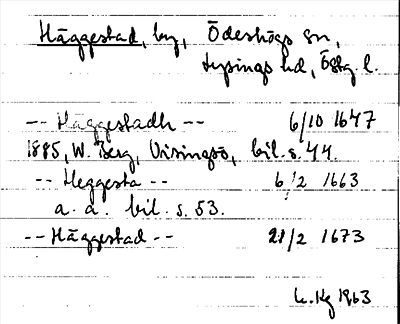 Häggestad, by, Ödeshögs sn,
Lysings hd, Östg. l.
-- Häggestadh -- 6/10 1647
1885, W. Berg, Visingsö, bil. s. 44.
-- Heggesta -- 6/2 1663
a. a. bil. s. 53.
-- Häggestad -- 21/2 1673
L. Hg 1963